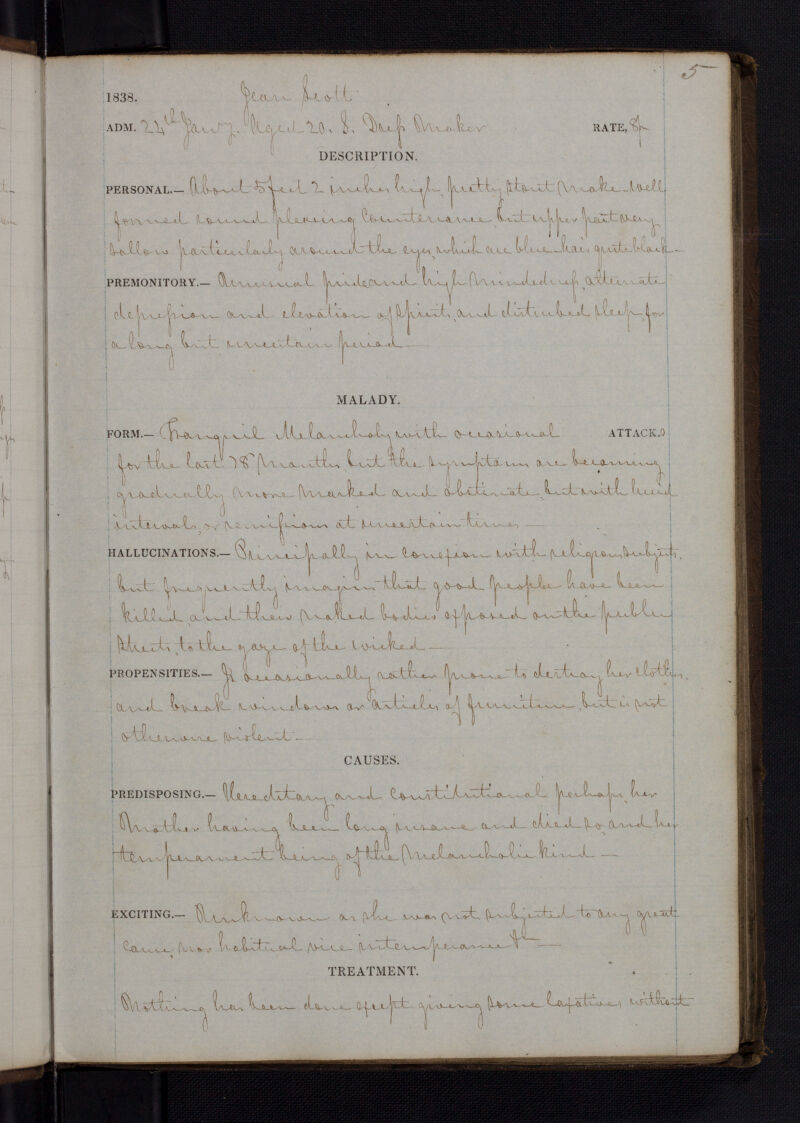 5
1838. Jean Scott
ADM. 24th Jany. Aged 20. S. Dress Maker RATE,
DESCRIPTION.
PERSONAL.— About 5 feet 2 inches high, pretty stout make well
formed round pleasing Countenance but upper part very
sallow particularly around the eyes, which are blue hair quite black
PREMONITORY.— Unusual pride and high mindedness, alternate
depression and elevation of Spirits, and disturbed sleep, for
a long but uncertain period
MALADY.
FORM.— Tranquil Melancholy with occasional ATTACK.
for the last 18 months but the symptoms are becoming
gradually more marked and obstinate, but with lucid
intervals, or remissions at uncertain times—
HALLUCINATIONS.— Principally in conexion with religious subjects,
but frequently imagines that good people have been
killed, and their naked bodies exposed on the public
streets, to the gaze of the wicked—
PROPENSITIES.— Is occasionally rather prone to destroy her clothes,
and break windows or articles of furniture, but is not
otherwise violent—
CAUSES.
PREDISPOSING.— Hereditary and Constitutional perhaps, her
Mother having been long insane and died so, and her
temperament being of the Melancholic kind—
EXCITING.— Unknown as she was not subjected to any great
cause, nor habitual vice intemperance &c—
TREATMENT.
Nothing has been done except giving some laxatives without